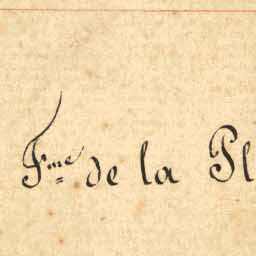 Fme de la Pl